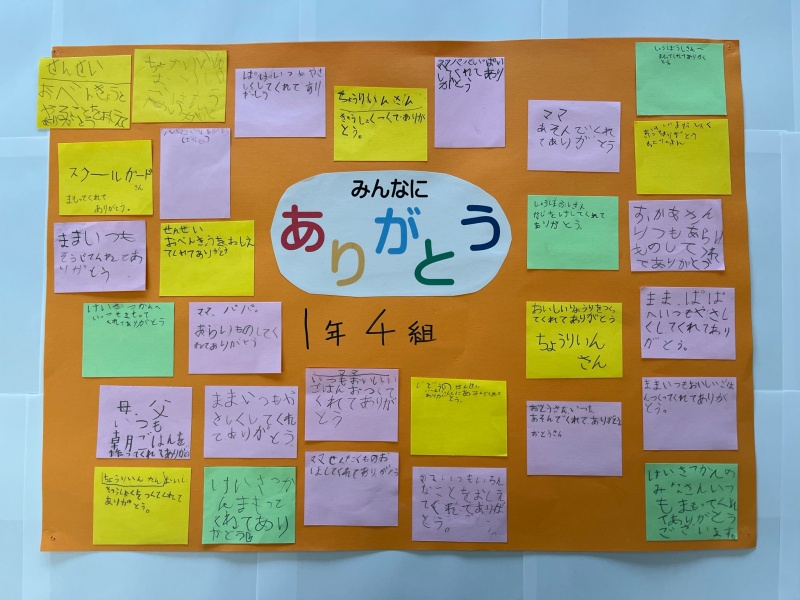 せんせい
おべんきょうと
やることをおしえて
ありがとうございます
ぱぱいつもやさ
しくしてくれて あり
がとう
ちょうりいんさん
きゅうしょくつくってありが
とう。
ママパパいっぱい
してくれてあり
がとう
しょうぼうしさんへ
ママ
あそんでくれ
てありがとう
スクールガード
さん
まもってくれて
ありがとう。
みんなに
ありがとう
1年4組
ままいつも
そうじてくれてあ
りがとう
せんせい
おべんきょうをおしえ
てくれてありがとう
しょうぼうしさん
かじをけしてくれて
ありがとう。
おかあさん
いつもあらい
ものしてくれ
てありがとう
けいさつかんへ
いつもまもって
くれてありがとう
ママ、パパ。
あらいものしてく
れてありがとう
おいしいりょうりをつくっ
てくれてありがとう
ちょうりいん
さん
まま、ぱぱ
へいつもやさし
くしてくれてあり
がとう。
母、父
いつも
朝ごはんを
作ってくれてありがとう
ままいつもや
さしくしてくれ
てありがとう
ママ
いつもおいしい
ごはんおつくって
くれてありが
とう
おとうさんいつも
あそんでくれてありがとう
おとうさん
ままいつもおいしいごは
んつくってくれてありが
とう。
ちょうりいんさんおいしい
きゅうしょくをつくてくれて
ありがとう。
けいさつか
んまもって
くれてあり
がとう
ママせんたくものお
ほしてくれてありがとう
ままいつもいろん
なことをおしえ
てくれてありが
とう。
けいさつかんの
みなさんいつ
もまもってくれ
てありがとう
ございます。